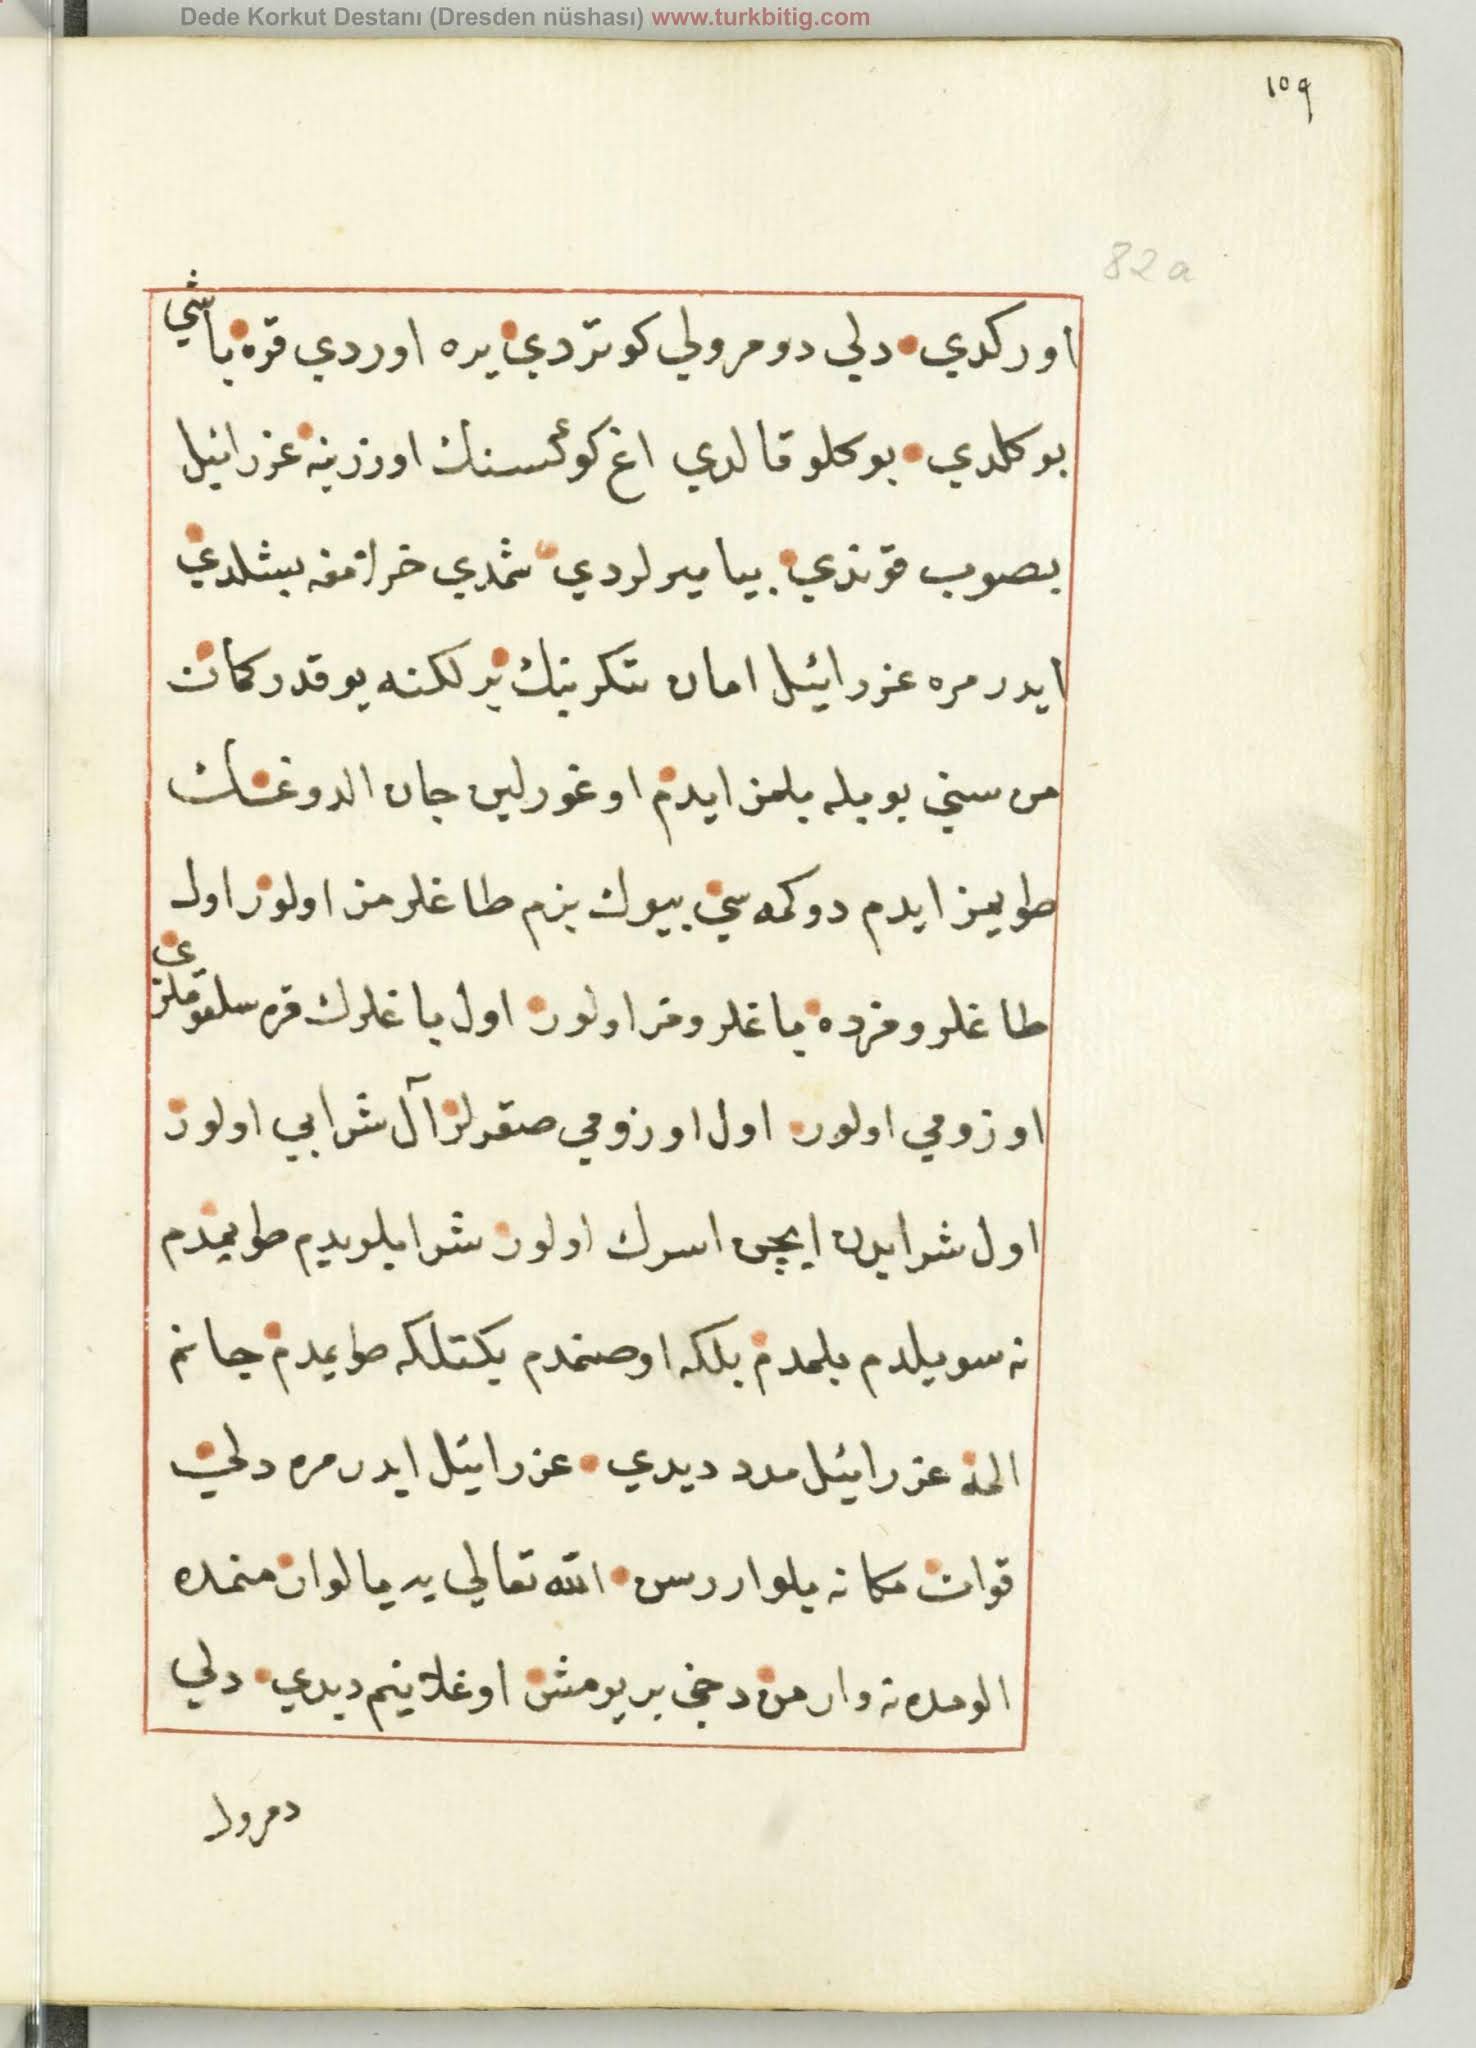 Dede Korkut Destanı (Dresden nüshası) www.turkbitig.com
١٥٩
82a
اوركدي دلي دومرولي كوتردي يره اوردي قره باشي
بوكلدي بوكلو قالدي اغ كوكسنك اوزرينه عزرائيل
بصوب قوندي بيامير لردي شمدي خرلامغه بشلدي
ايدر مره عزرائيل امان تنكرينك بر لكنه يوقدر كمان
من سني بويله بلمز ايدم اوغورلين جان الدوغك
طويمز ايدم دوكمه سي بيوك بزم طاغلرمز اولور اول
طاغلرومزده باغلرومز اولور اول باغلرك قره سلقوملري
اوزومي اولور اول اوزومي صقرلر آل شرابي اولور
اول شرابدن ايچن اسرك اولور شرابلويدم طويمدم
نه سويلدم بلمدم بلكه اوصنمدم يكتلكه طويمدم جانم
المه عزرائيل مدد ديدي عزرائيل ايدر مره دلي
قوات مكا نه يلواررسن الله تعالي يه يالوار منمده
الومده نه وار من دخي بر يومش اوغلانيم ديدي دلي
دمرول